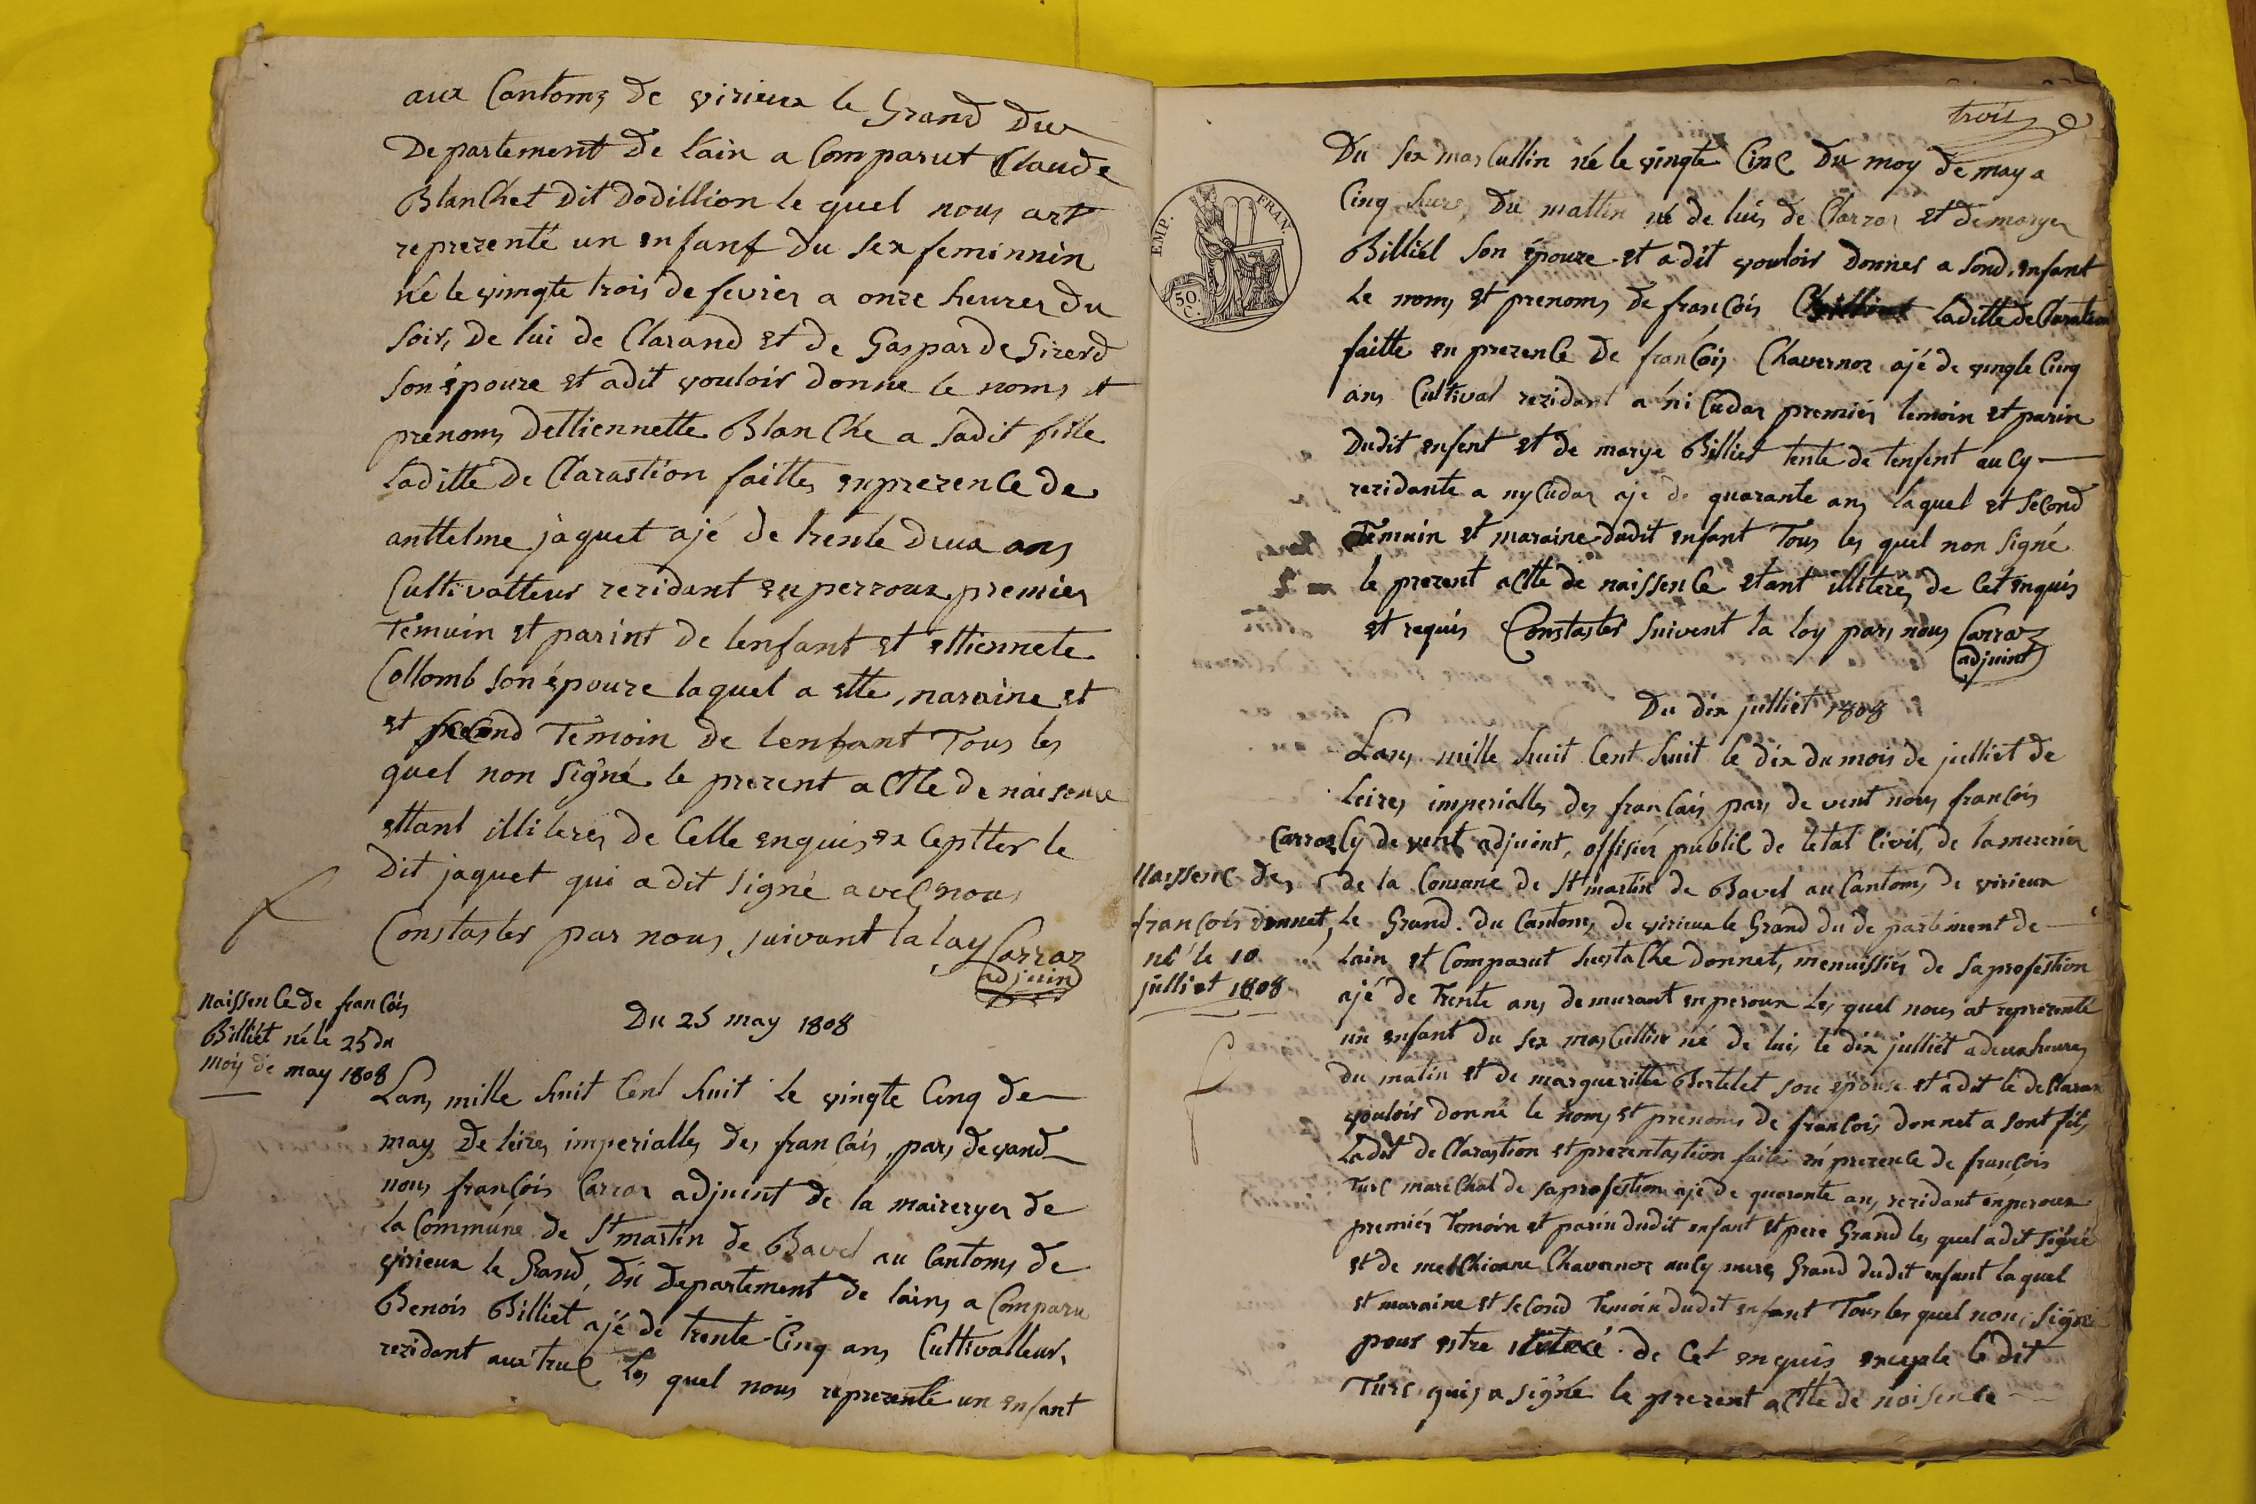 aux Cantoms de virieux le Grand du
Departement de l'ain a Comparut Claude
Blanchet dit dodillion le quel nous at
reprezenté un enfant du sex feminnin
né le vingte trois de fevrier a onze heures du
soir, de lui de Clarand et de Gasparde Girerd
son épouze et a dit vouloir donne le noms et
prenoms dettiennette Blanche a sadit fille
Laditte de Clarastion faittes en prezence de
anttelme jaquet ajé de trente deux ans
Cultivatteur rezidant en perroux premier
Temuin et parint de lenfant et ettiennete
Collomb son épouze laquel a ette naraine et
et second Temoin de lenfant Tous les
quel non signé le prezent actte de naisence
ettant illiteres de Cette enquis exceptter le
Dit jaquet qui a dit signé avec nous
Constaster par nous suivant la loy Carraz
adjuin
naissence de francois
Billiet né le 25 du
moy de may 1808
Du 25 may 1808
Lans mille huit Cent huit le vingte Cinq de
may de leires imperialles des francais pars devand
nous francois Carraz adjuint de la maireryes de
la Commune de St martin de Bavel au Cantoms de
virieux le Grand, du departement de lains a Comparu
Benois Billiet ajé de trente-Cinq ans Cultivatteur,
rezidant aux truc les quel nous reprezenté un enfant
trois
Du sex mascullin né le vingte Cinc du moy de may a
Cinq heure du mattin né de luis de Clarran et de marye
Billiél son épouze et a dit vouloir donner a sond enfant
Le noms et prenoms de francois laditte de Claration
faitte en prezence de francois Chavernoz ajé de vingte Cinq
ans Cultivat rezidant a ni Cudar premier temoin et parin
dudit enfent et de marye Billiet tente de lenfent au Cy
rezidante a ny Cudar aje de quarante ans laquel et second
Temuin et maraine dudit enfant Tous les quel non signé
le prezent actte de naissence etant illiteres de Cet enquis
et requis Constaster suivent la loy pars nous Carraz
adjuint
Du dix julliet 1808
Lans mille huit Cent huit le dix du mois de julliet de
Leires imperialles des francais pars de vent nous francois
Carraz Cy de vent adjuint, offisier public de letat Civil, de la mererier
de la Comune de St martin de Bavel au Cantoms de virieux
le Grand. du Cantoms de virieux le Grand du de partement de
Lain et Comparut hustache donnet, menuissiers de sa profestion
ajé de Trente ans demurant en peroux les quel nous at reprezenté
un enfant du sex mascullin né de luis le dix julliet a deux heures
du matin et de margueritte Bertelet son épouse et a dit le de Claran
vouloir donné le noms et prenoms de francois donnet a sont fils
Ladit de Clarastion et prezentastion faite en prezence de francois
Turc marechal de sa profestion aje de quarante ans rezidant en peroux
premier Temoin et parin dudit enfant et pere Grand les quel a dit signé
et de melchionne Chavernoz au Cy mere Grand dudit enfant laquel
et maraine et second Temoin dudit enfant Tous les quel non signé
pour estre de Cet enquis excepte le dit
Turc quis a signé le prezent actte de noisence
Naissenc des
francois donnet,
né le 10
julliet 1808
EMP. FRAN.
50
C.